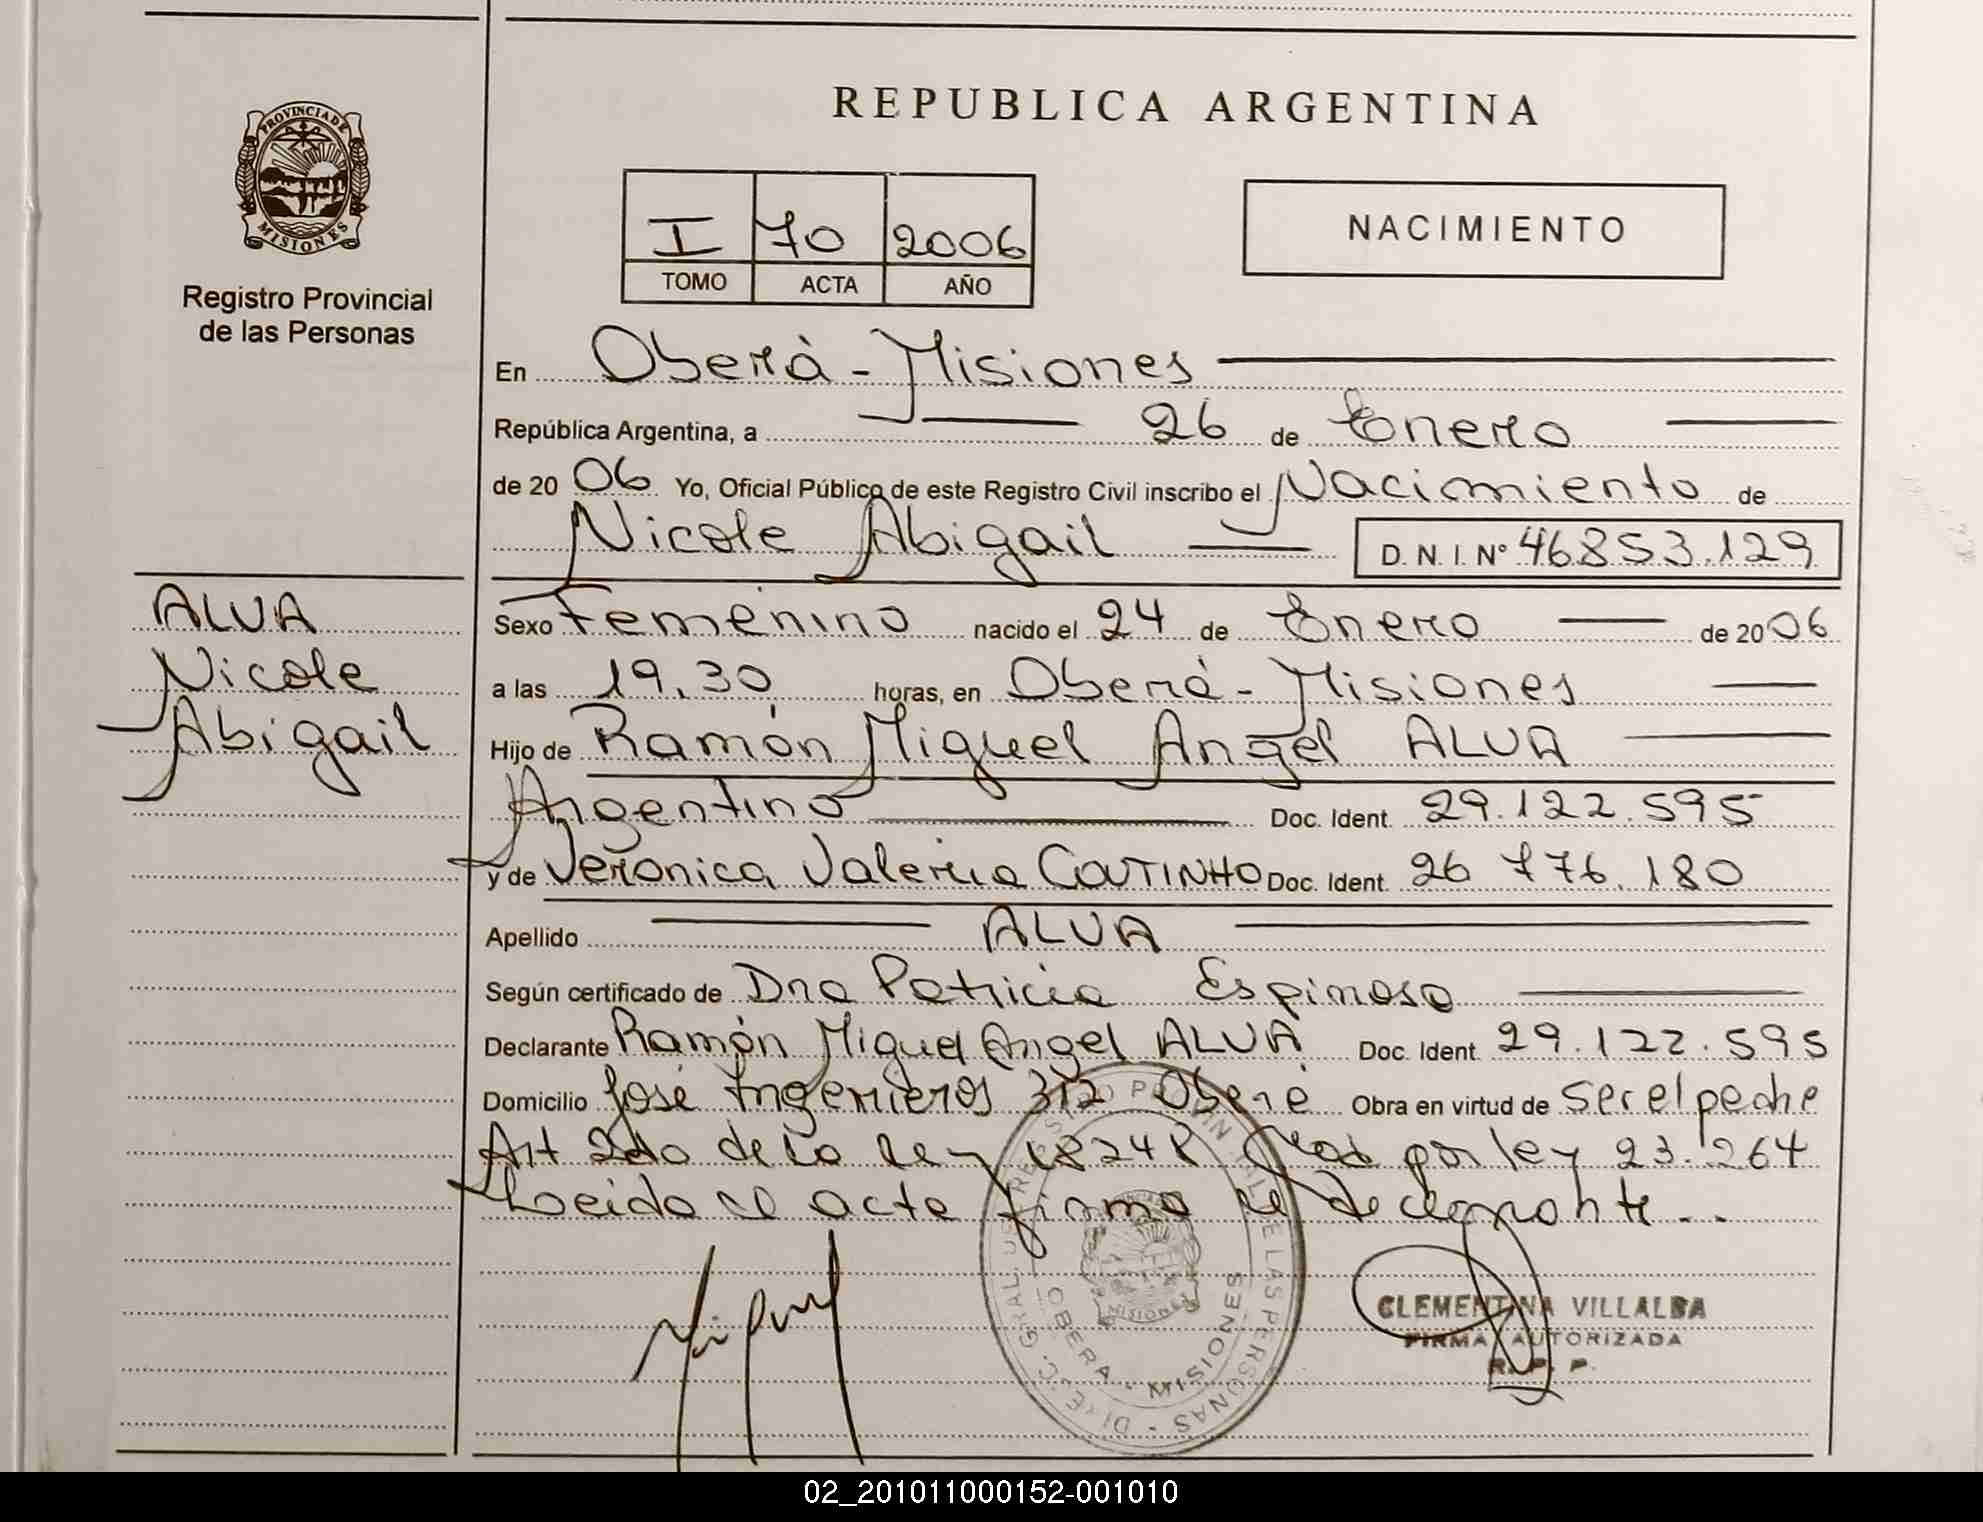 REPUBLICA ARGENTINA
PROVINCIA DE
MISIONES
Registro Provincial
de las Personas
I 70 2006
TOMO ACTA AÑO
NACIMIENTO
En Oberá - Misiones
República Argentina, a 26 de Enero
de 20 06 Yo, Oficial Público de este Registro Civil inscribo el Nacimiento de
Nicole Abigail D. N. I. Nº 46.853.129
ALVA
Nicole
Abigail
Sexo Femenino nacido el 24 de Enero de 20 06
a las 19.30 horas, en Oberá - Misiones
Hijo de Ramón Miguel Angel ALVA
Argentino Doc. Ident. 29.122.595
y de Veronica Valeria COUTINHO Doc. Ident. 26 776.180
Apellido ALVA
Según certificado de Dra Patricia Espinosa
Declarante Ramón Miguel Angel ALVA Doc. Ident. 29.122.595
Domicilio José Ingenieros 312 Oberá Obra en virtud de ser el padre
Art 2do de la ley 18248 por ley 23.264
Leido el acta firma el declarante..
Miguel
OBERA - MISIONES
MISIONES
CLEMENTINA VILLALBA
FIRMA AUTORIZADA
R. P. P.
02_201011000152-001010